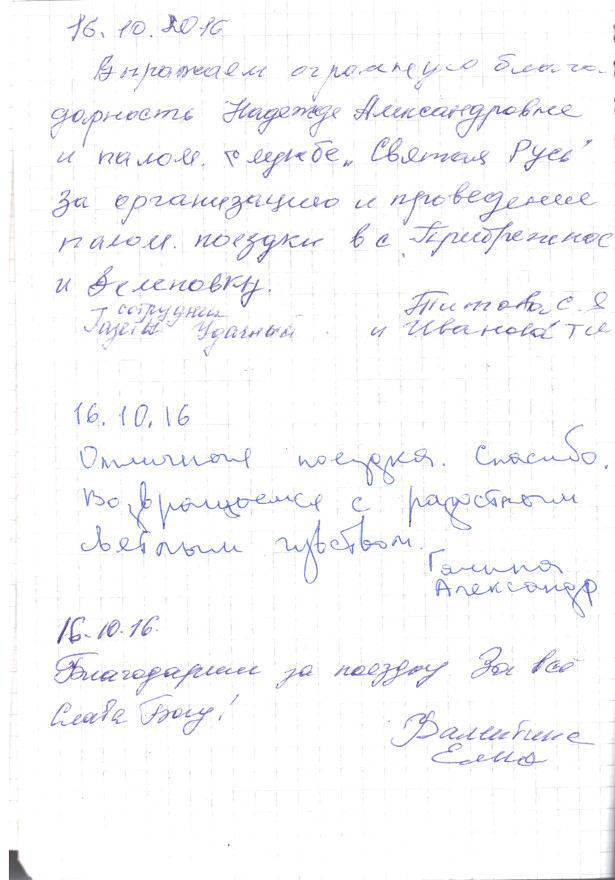 16.10.2016
Выражаем огромную благо-
дарность Надежде Александровне
и палом. службе „Святая Русь"
за организацию и проведение
палом. поездки в с. Прибрежное
и Зеленовку.
сотрудники
Газеты Удачный
Титова С. Я
и Иванова Т И
16.10.16
Отличная поездка. Спасибо.
Возвращаемся с радостным
светлым чувством.
Галина
Александр
16.10.16.
Благодарим за поездку За всё
Слава Богу!
Валентина
Елена